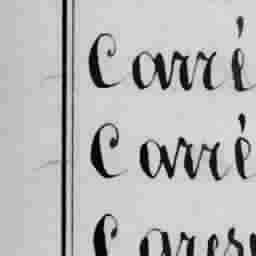 Carré
Carré